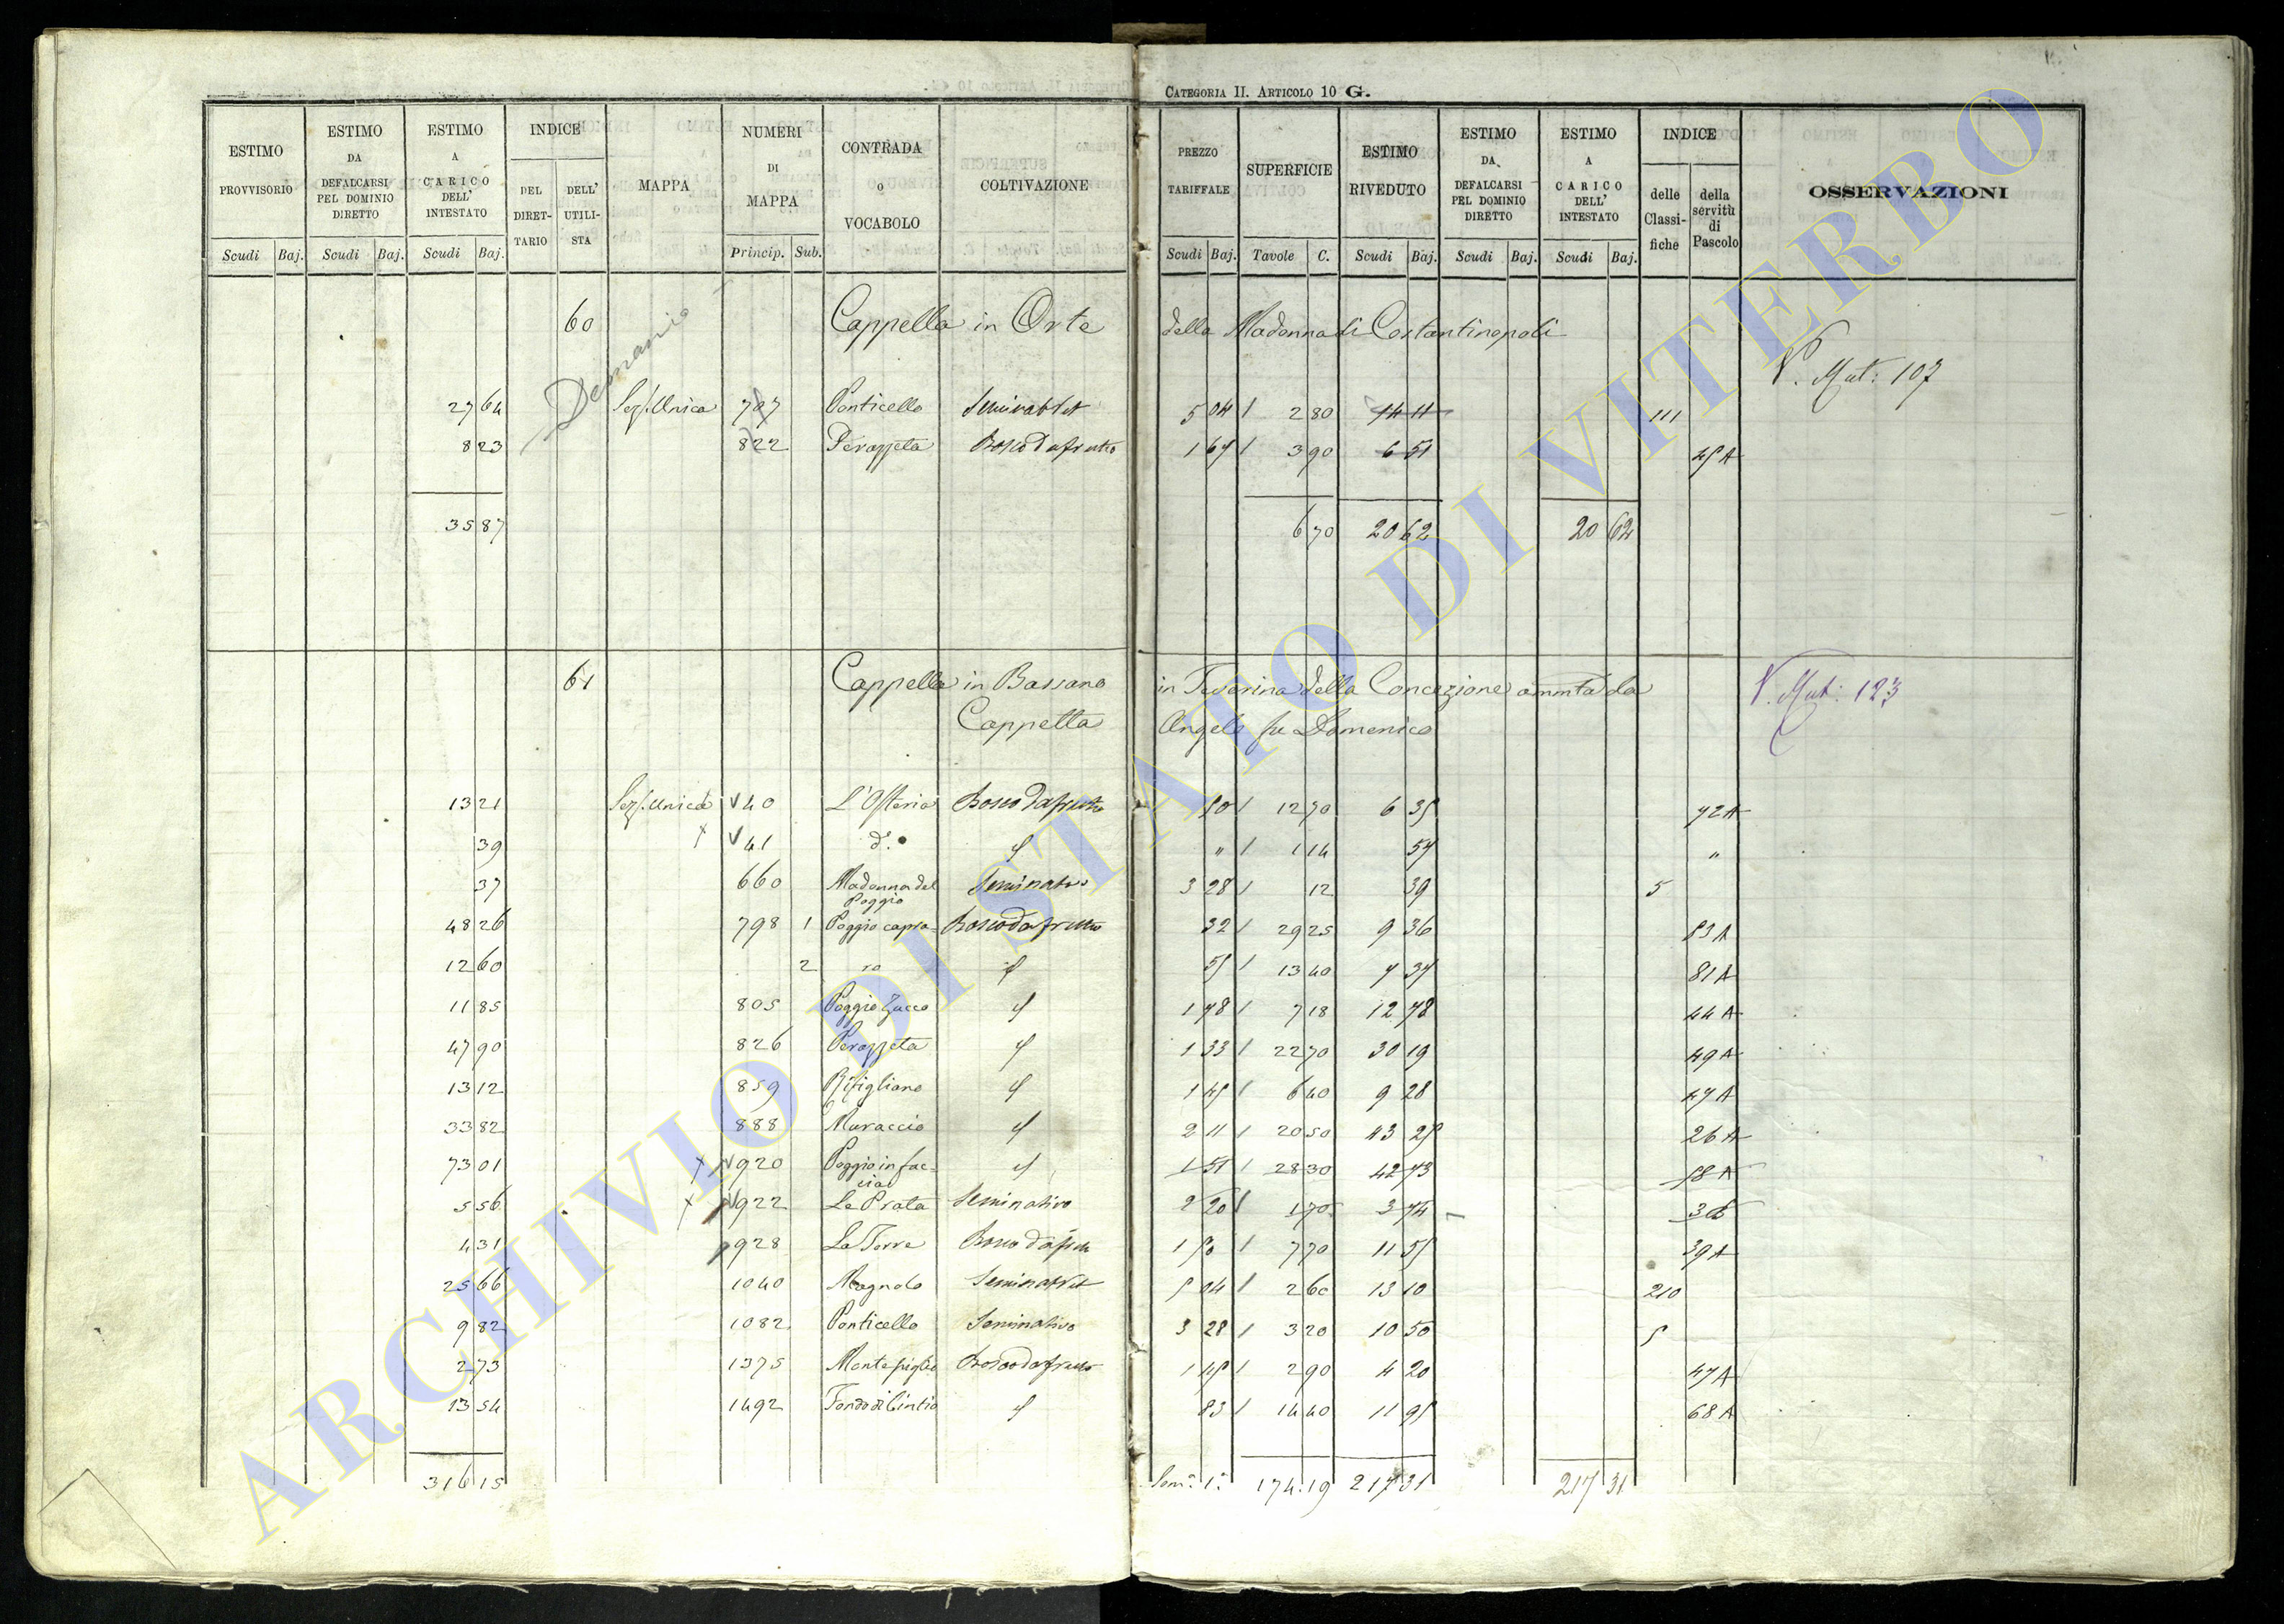 CATEGORIA II. ARTICOLO 10 G.
ESTIMO PROVVISORIO | ESTIMO DA DEFALCARSI PEL DOMINIO DIRETTO | ESTIMO A CARICO DELL' INTESTATO | INDICE DEL DIRET-TARIO | DELL' UTILI-STA | MAPPA | NUMERI DI MAPPA | CONTRADA O VOCABOLO | COLTIVAZIONE | PREZZO TARIFFALE | SUPERFICIE | ESTIMO RIVEDUTO | ESTIMO DA DEFALCARSI PEL DOMINIO DIRETTO | ESTIMO A CARICO DELL' INTESTATO | INDICE delle Classi-fiche | della servitù di Pascolo | OSSERVAZIONI
Scudi Baj. Scudi Baj. Scudi Baj. Princip. Sub. Scudi Baj. Tavole C. Scudi Baj. Scudi Baj. Scudi Baj.
60 Cappella in Orte della Madonna di Costantinopoli
Demanio
V. Mut: 107
27 64 Sez. Unica 707 Ponticello 5 04 2 80 14 11 111
8 23 822 Perazzeta Bosco da frutto 1 67 3 90 6 51 45 A
35 87 6 70 20 62 20 62
61 Cappella in Bassano in Teverina della Concezione ammta da V. Mut: 123
Cappetta Angelo fu Domenico
13 21 Sez. Unica 40 L'Osteria Bosco da frutto 50 12 70 6 35 72 A
39 41 d.o 〃 1 14 57 〃
37 660 Madonna del Poggio Seminativo 3 28 12 39 5
48 26 798 1 Poggio capra- Bosco da frutto 32 29 25 9 36 83 A
12 60 2 ro 55 13 40 7 37 81 A
11 85 805 Poggio Zucco 1 78 7 18 12 78 44 A
47 90 826 Perazzeta 1 33 22 70 30 19 49 A
13 12 859 Rifigliano 1 45 6 40 9 28 47 A
33 82 888 Muraccio 2 11 20 50 43 25 26 A
73 01 920 Poggio in fac-cia 1 51 28 30 42 73 58 A
5 56 922 Le Prata Seminativo 2 20 1 70 3 74 36
4 31 928 La Torre 1 50 7 70 11 55 39 A
25 66 1040 Magnolo 5 04 2 60 13 10 210
9 82 1082 Ponticello Seminativo 3 28 3 20 10 50 5
2 73 1375 Bosco da frutto 1 45 2 90 4 20 47 A
13 54 1492 Fondo di Cintio 83 14 40 11 95 68 A
316 15 Som.a 1.a 174.19 217 31 217 31
ARCHIVIO DI STATO DI VITERBO